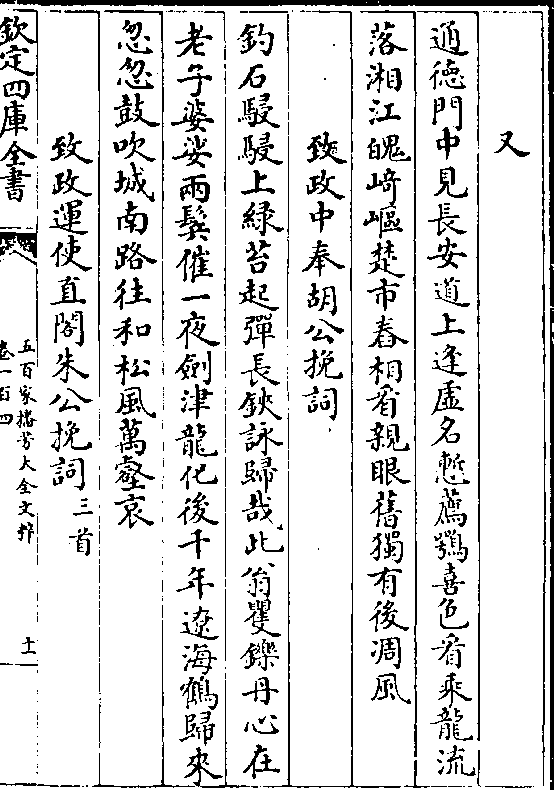 又
通徳門中見長安道上逢虛名慙薦鶚喜色看乘龍流
落湘江魄﨑嶇楚市舂相看親眼舊獨有後凋風
致政中奉胡公挽詞
釣石駸駸上緑苔起彈長鋏詠歸哉此翁矍鑠丹心在
老子婆娑兩鬓催一夜劍津龍化後千年遼海鶴歸來
忽忽鼓吹城南路往和松風萬壑哀
致政運使直閣朱公挽詞三首
欽定四庫全書
五百家播芳大全文粹
卷一百四
十一